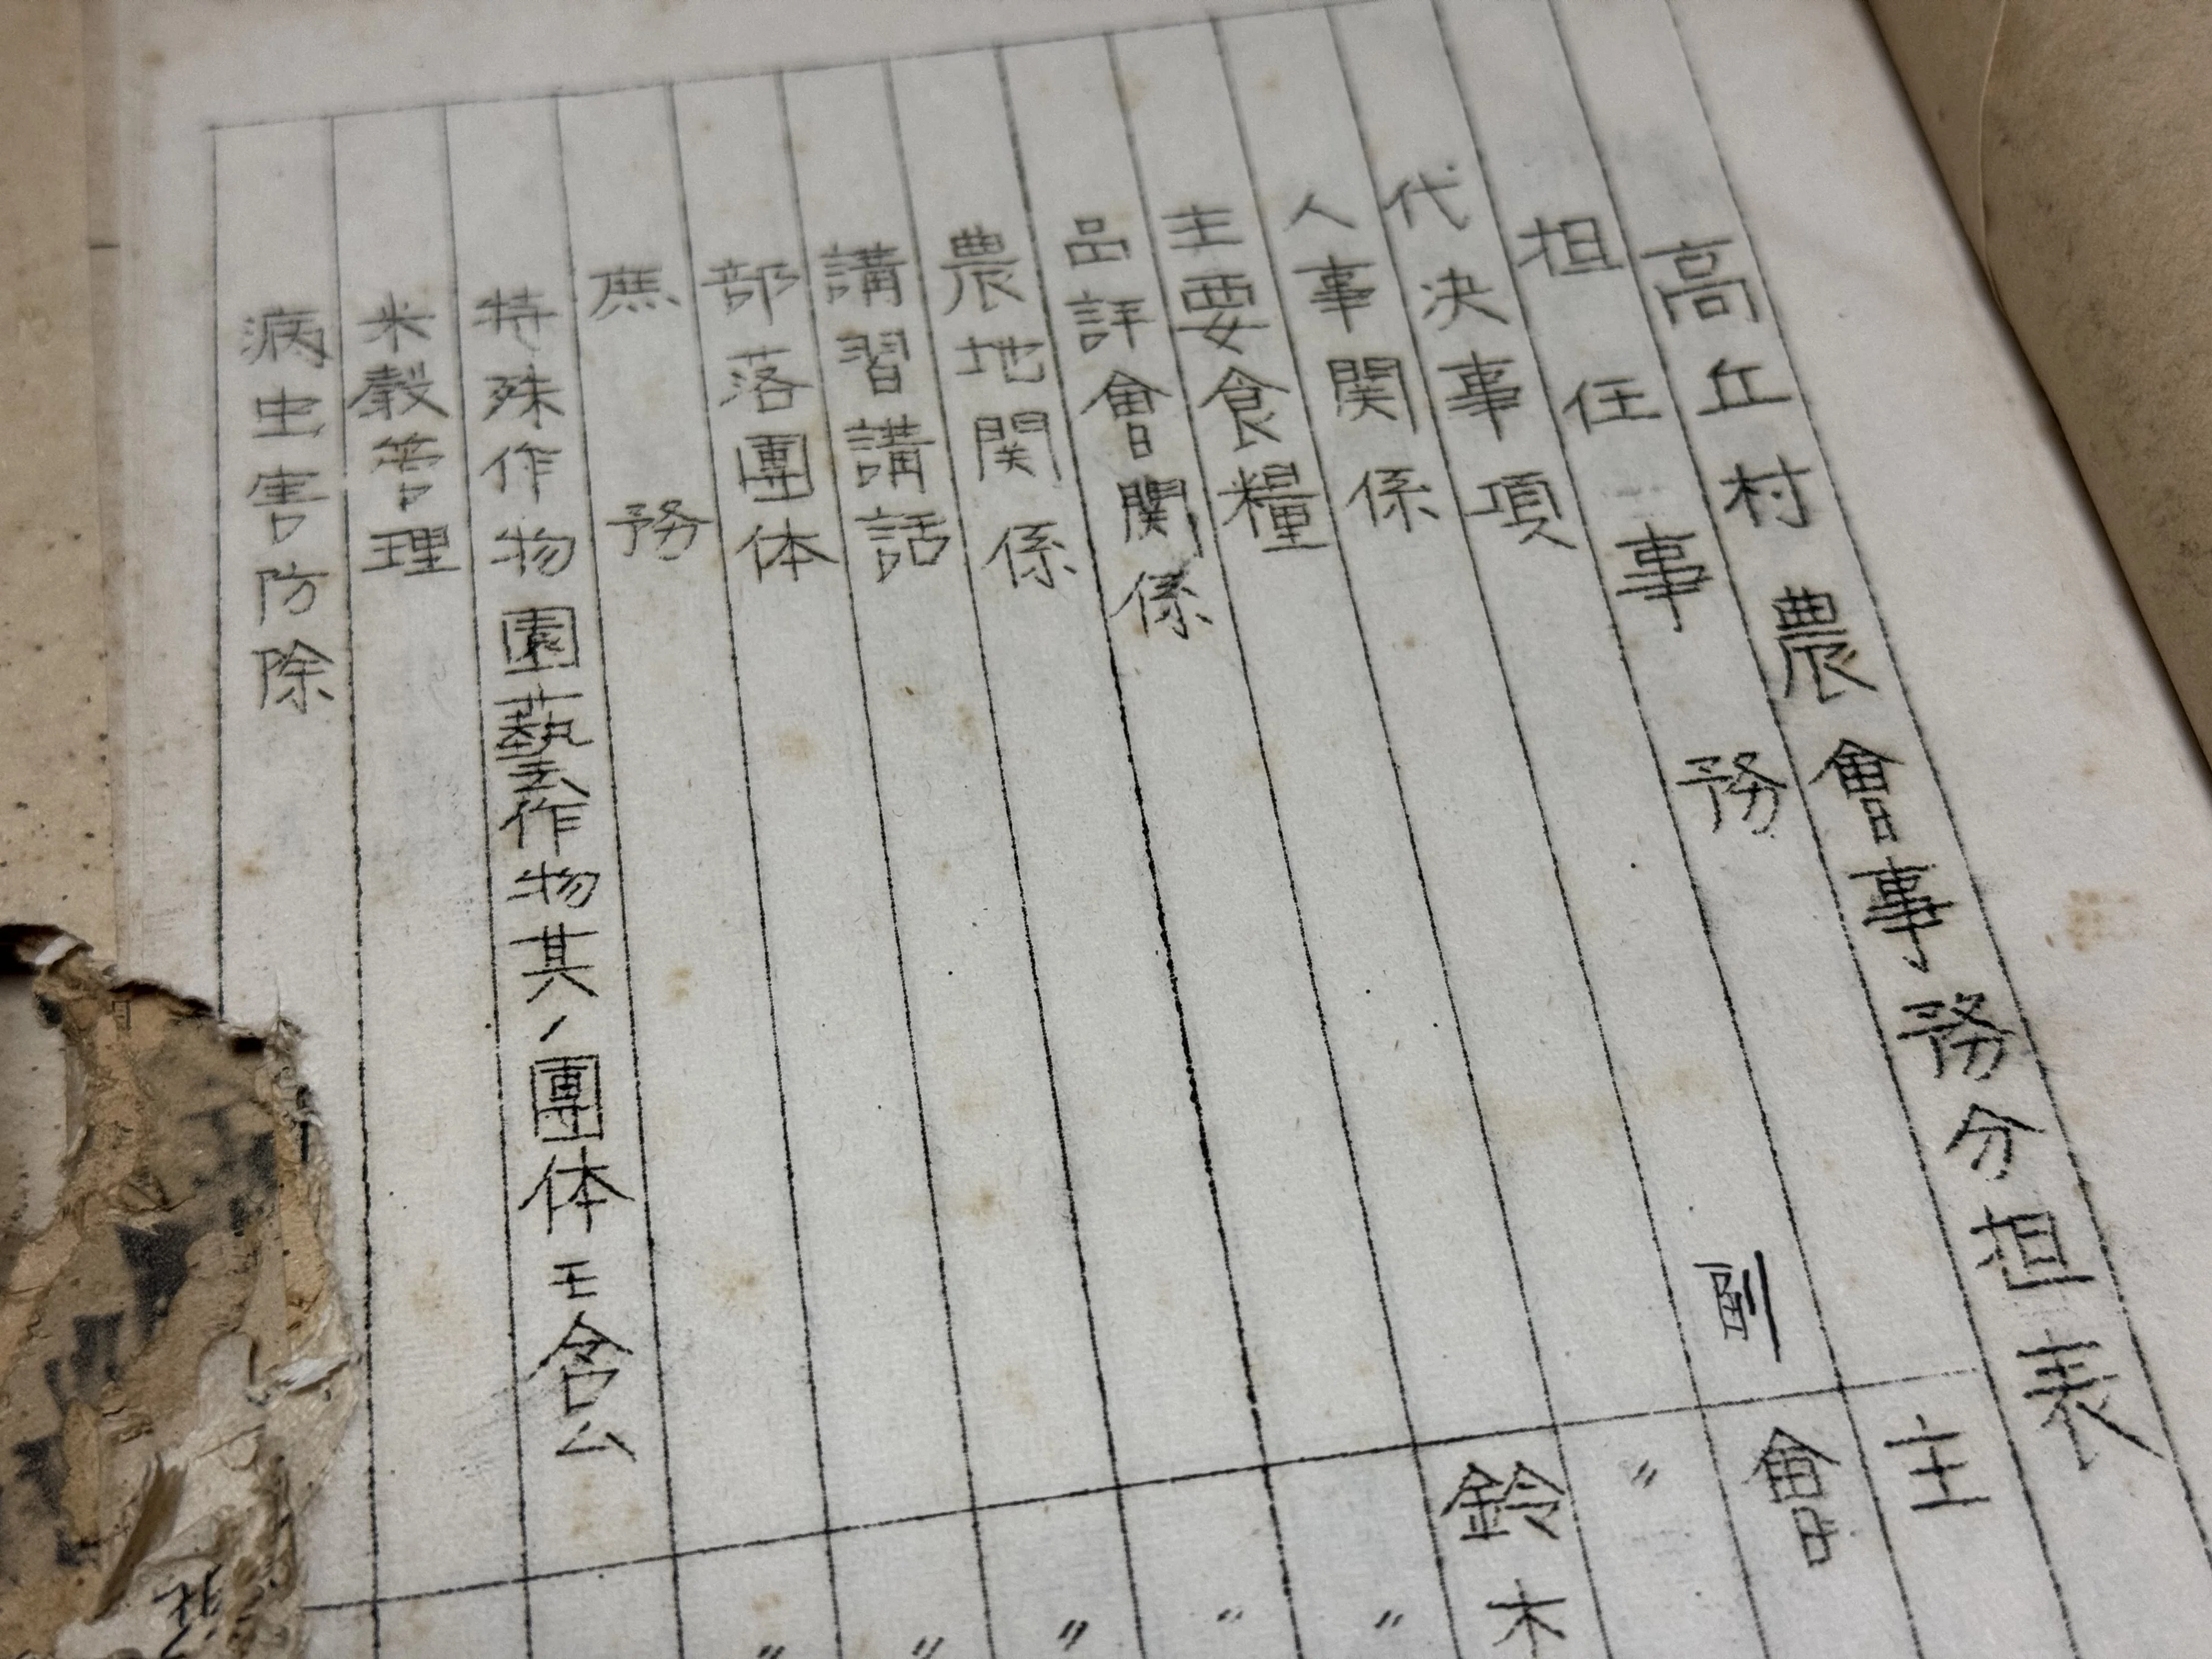 高丘村農會事務分担表
担任事務 主
副 會
代決事項 〃
人事関係 鈴木
主要食糧 〃
品評會関係 〃
農地関係 〃
講習講話 〃
部落團体 〃
庶務
特殊作物園藝作物其ノ團体モ含ム
米穀管理
病虫害防除